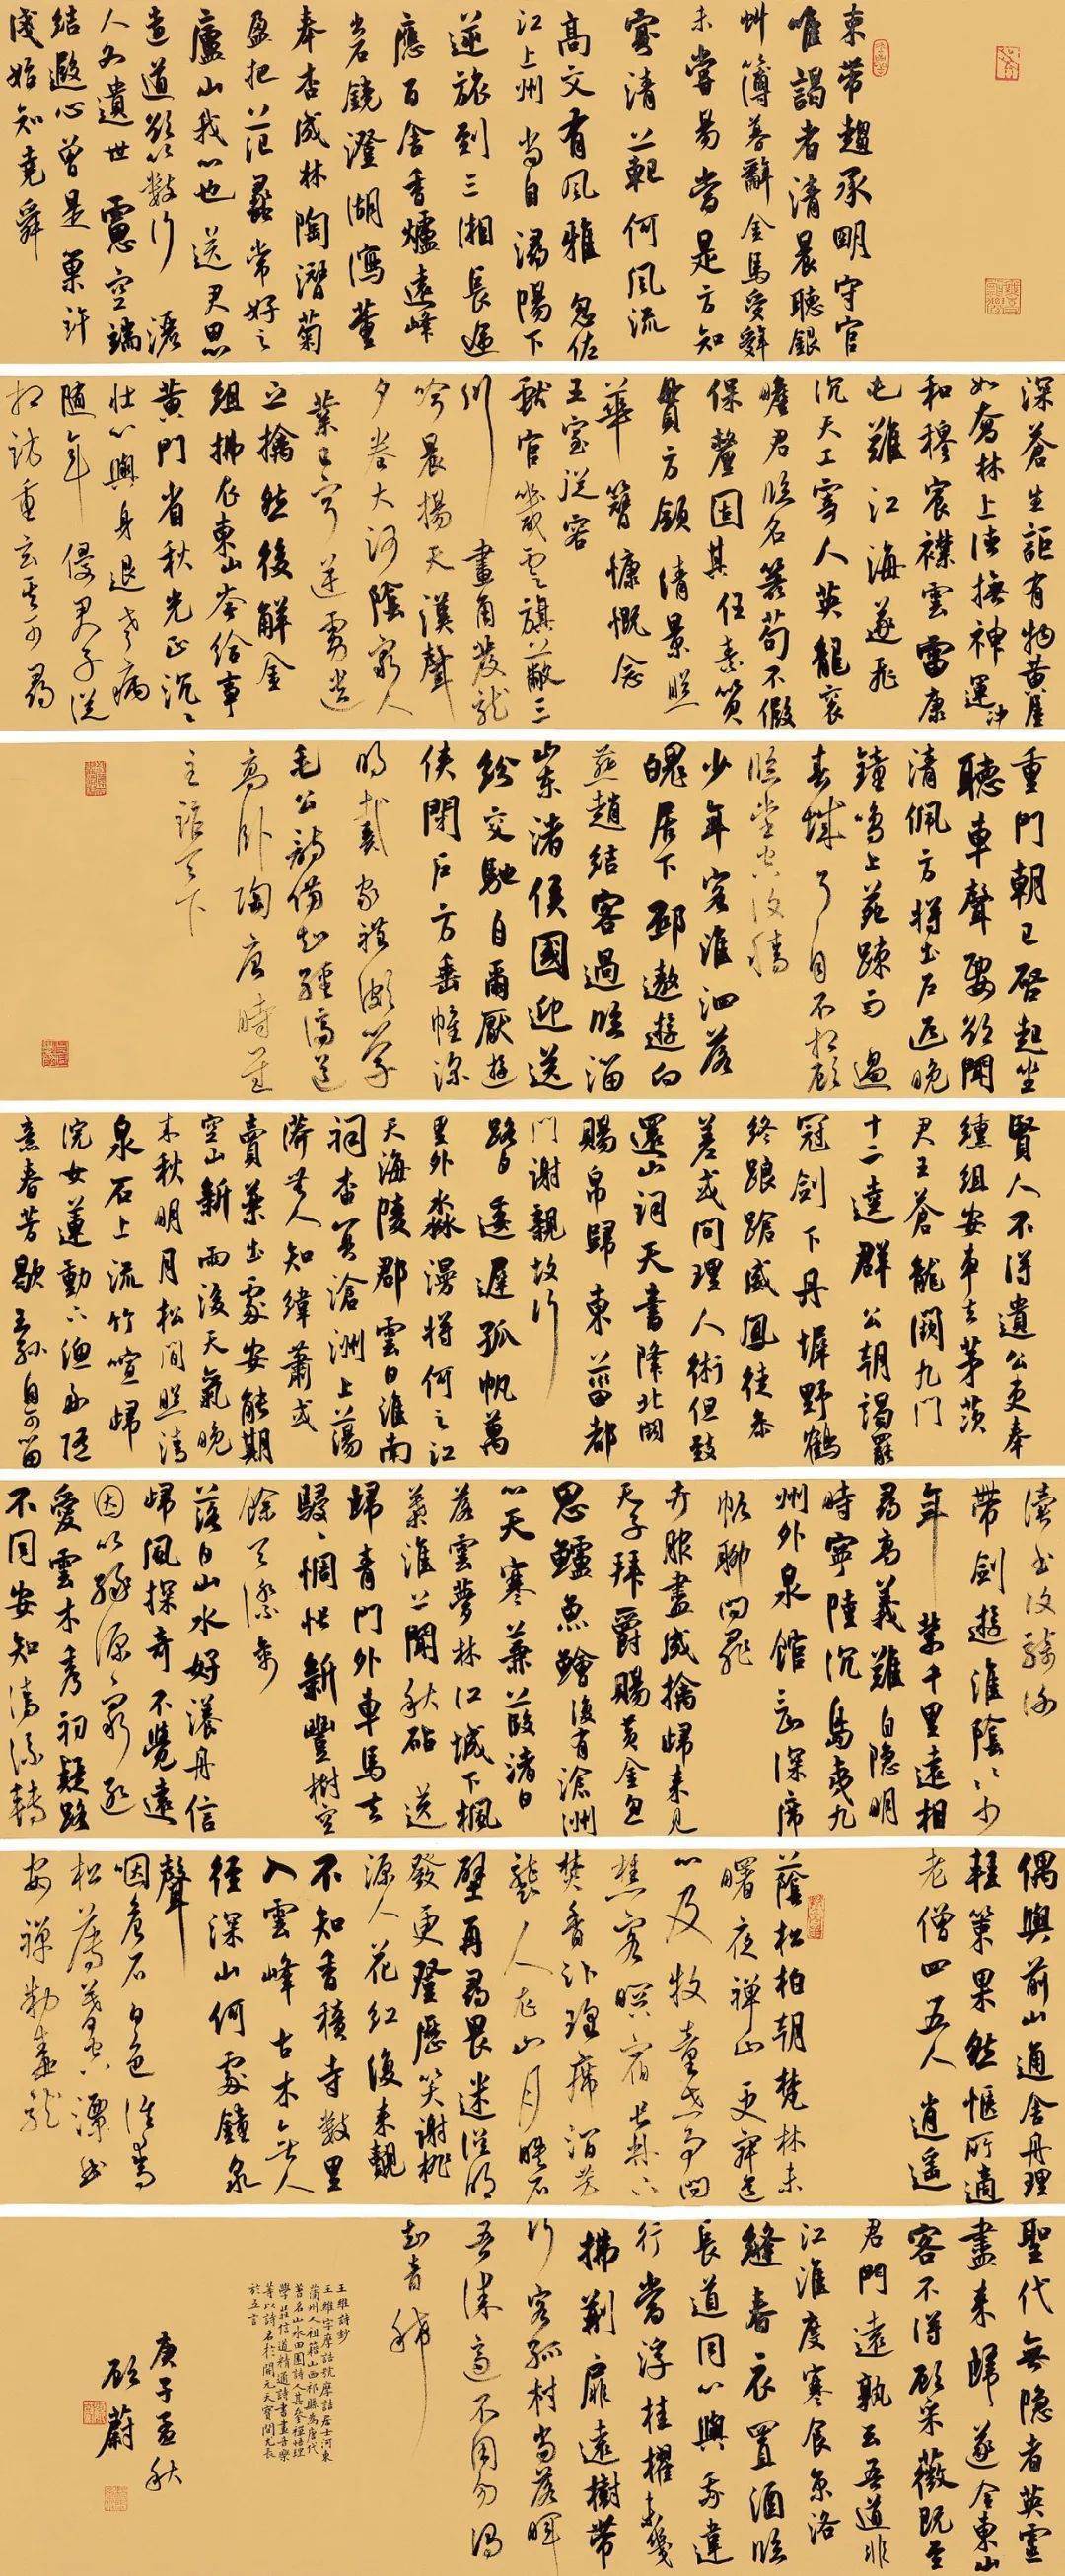 束帶趨承明守官
唯謁者清晨聽銀
虯簿暮辭金馬受辭
未嘗易當是方知
寡清範何風流
高文有風雅忽佐
江上州當自潯陽下
逆旅到三湘長途
應百舍香爐遠峰
出石鏡澄湖瀉董
奉杏成林陶潛菊
盈把范蠡常好之
廬山我心也送君思
遠道欲以數行灑
人外遺世慮空端
結遐心曾是巢許
淺始知堯舜
深蒼生詎有物黃屋
如喬林上德撫神運沖
和穆宸襟雲雷康
屯難江海遂飛
沉天工寄人英龍袞
瞻君臨名器苟不假
保釐固其任素質
貫方領清景照
華簪慷慨念
王室從容
獻官箴雲旗蔽三
川畫角發龍
吟晨揚天漢聲
夕卷大河陰窮人
業已寧逆虜遺
之擒然後解金
組拂衣東山岑給事
黃門省秋光正沉沉
壯心與身退老病
隨年侵君子從
相訪重玄其可尋
重門朝已啓起坐
聽車聲要欲聞
清佩方將出戶迎晚
鐘鳴上苑疎雨過
春城了自不相顧
臨堂空復情
少年客淮泗落
魄居下邳遨遊向
燕趙結客過臨淄
山東諸侯國迎送
紛交馳自爾厭遊
俠閉戶方垂帷深
明戴家禮頗學
毛公詩備知經濟道
高臥陶唐時聖
主詔天下
賢人不得遺公吏奉
纁組安車去茅茨
君王蒼龍闕九門
十二逵群公朝謁罷
冠劍下丹墀野鶴
終踉蹌威鳳徒參
差或問理人術但致
還山詞天書降北闕
賜帛歸東菑都
門謝親故行
路日逶遲孤帆萬
里外淼漫將何之江
天海陵郡雲日淮南
祠杳冥滄洲上蕩
漭無人知緯蕭或
賣藥出處安能期
空山新雨後天氣晚
來秋明月松間照清
泉石上流竹喧歸
浣女蓮動下漁舟隨
意春芳歇王孫自可留
讀書復騎射
帶劍遊淮陰淮陰少
年輩千里遠相
尋高義難自隱明
時寧陸沉島夷九
州外泉館三深席
帆聊問罪
卉服盡成擒歸來見
天子拜爵賜黃金忽
思鱸魚鱠復有滄洲
心天寒蒹葭渚日
落雲夢林江城下楓
葉淮上聞秋砧送
歸青門外車馬去
駸駸惆悵新豐樹空
餘天際禽
落日山水好漾舟信
歸風探奇不覺遠
因以緣源源窮遙
愛雲木秀初疑路
不同安知清流轉
偶與前山通舍舟理
輕策果然愜所適
老僧四五人逍遙
蔭松柏朝梵林未
曙夜禪山更寂道
心及牧童世事問
樵客暝宿長林下
焚香臥瑤席澗芳
襲人衣山月映石
壁再尋畏迷誤明
發更登歷笑謝桃
源人花紅復來覿
不知香積寺數里
入雲峰古木無人
徑深山何處鐘泉
聲
咽危石日色冷青
松薄暮空潭曲
安禪制毒龍
聖代無隱者英靈
盡來歸遂令東山
客不得顧采薇既至
君門遠孰云吾道非
江淮度寒食京洛
縫春衣置酒臨
長道同心與我違
行當浮桂櫂未幾
拂荊扉遠樹帶
行客孤村當落暉
吾謀適不用勿謂
知音稀
王維詩鈔
王維字摩詰號摩詰居士河東
蒲州人祖籍山西祁縣爲唐代
著名山水田園詩人其參禪悟理
學莊信道精通詩書畫音樂
等以詩名於開元天寶間尤長
於五言
庚子孟秋
顧蔚